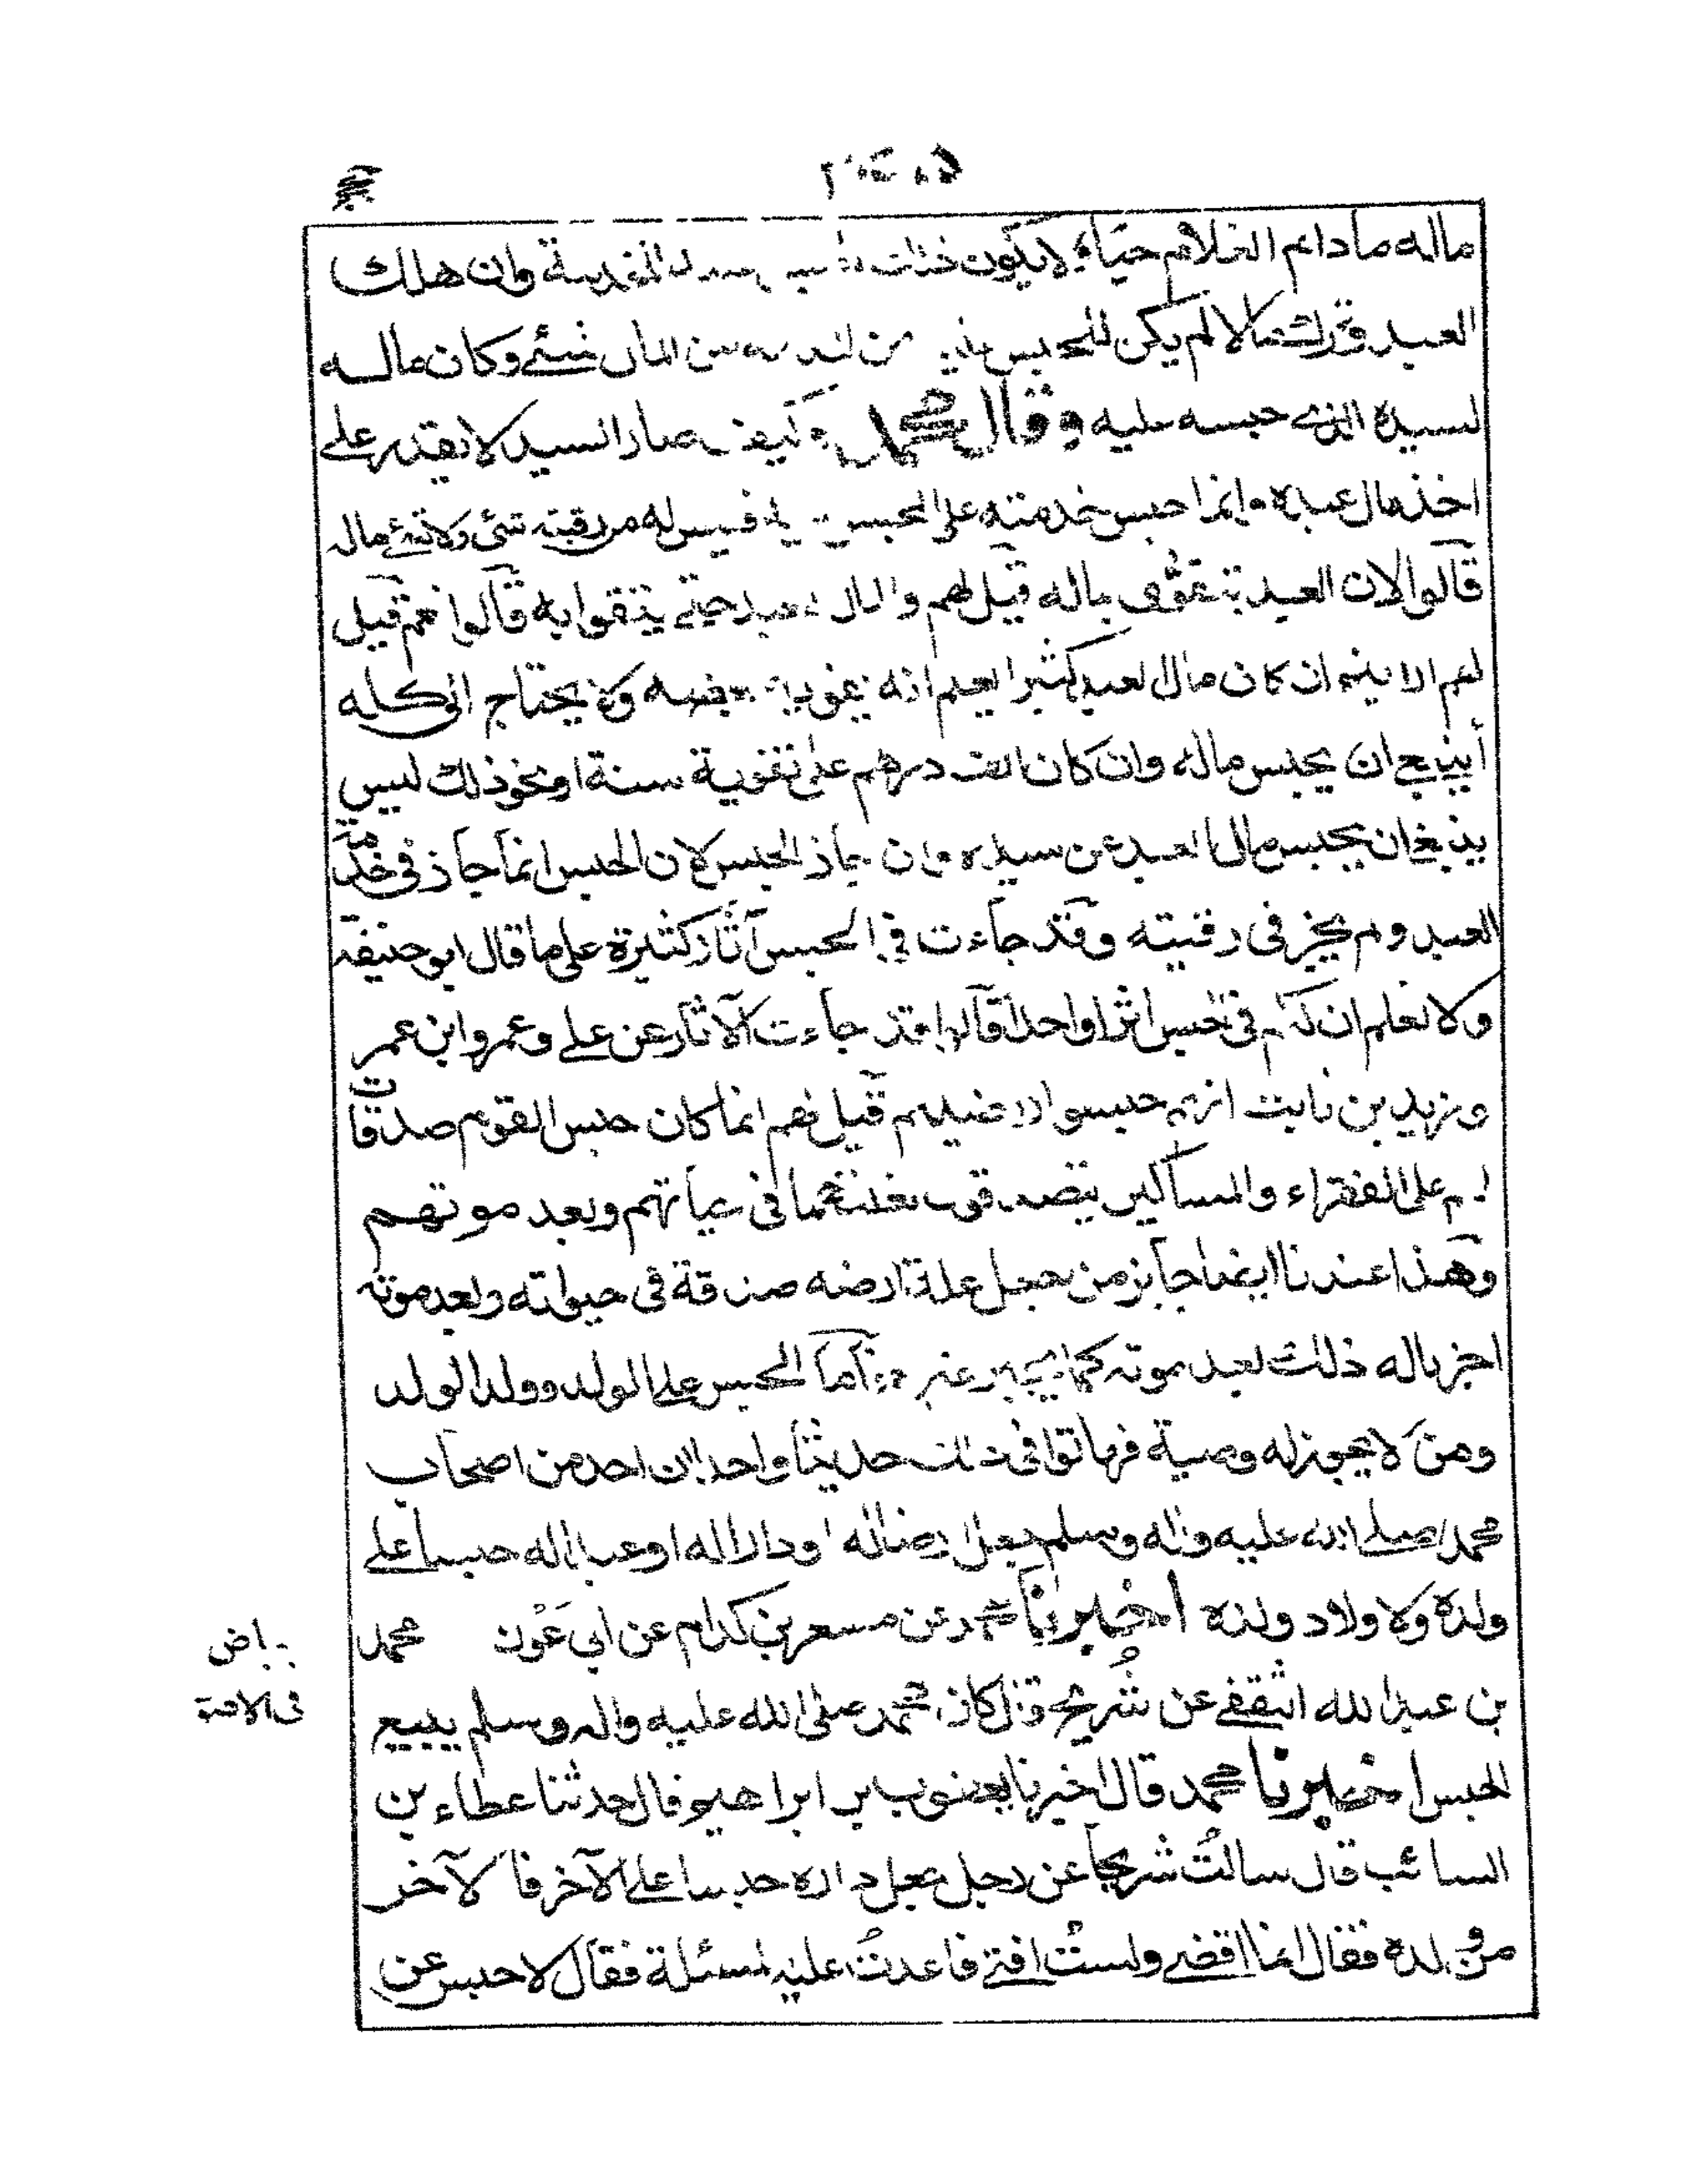 ماله مادام الغلام حياء لا يكون ذلك وان هلك
العبد وترك مالا لم يكن للمحبس من المال شئ وكان ماله
لسيده الذي حبسه عليه وقال محمد وكيف صار السيد لا يقدر على
اخذ مال عبده وانما حبس خدمته على المحبس عليه فليس له من رقبته شئ ولا شئ ماله
قالوا لان العبد يتقوى بماله قيل لهم والمال للعبد حتى يتقوا به قالوا نعم قيل
لهم ارايتم ان كان مال العبد كثيرا يعلم انه يقوى نفسه ولا يحتاج الى كله
أينبغي ان يحبس ماله وان كان الف درهم على تقوية سنة او نحو ذلك ليس
ينبغي ان يحبس مال العبد عن سيده وان جاز الحبس لان الحبس انما جاز في خدمة
العبد ولم يجز في رقبته وقد جاءت في الحبس آثار كثيرة على ما قال ابو حنيفة
ولا نعلم ان لهم في الحبس اثرا واحدا قالوا قد جاءت الآثار عن علي وعمر وابن عمر
وزيد بن ثابت انهم حبسوا ارضيهم قيل لهم انما كان حبس القوم صدقات
لهم على الفقراء والمساكين يتصدقون بغلتهما في حياتهم وبعد موتهم
وهذا عندنا ايضا جايز من جعل غلة ارضه صدقة في حيوته وبعد موته
اجزنا له ذلك بعد موته كما يجيز غيره واما الحبس على الولد وولد الولد
ومن لا يجوز له وصية فهاتوا في ذلك حديثا واحدا ان احد من اصحاب
محمد صلى الله عليه واله وسلم جعل ارضا له او دارا له او عبدا له حبسا على
ولده ولا ولاد ولده اخبرنا محمد عن مسعر بن كدام عن أبي عون محمد
بن عبد الله الثقفي عن شريح قال كان محمد صلى الله عليه واله وسلم يبيع
الحبس اخبرنا محمد قال اخبرنا يعقوب بن ابراهيم قال حدثنا عطاء بن
السائب قال سالت شريحا عن رجل جعل داره حبسا على الآخر فالآخر
من ولده فقال انما اقضي ولست افتي فاعدت عليه المسئلة فقال لا حبس عن
بياض
في الاصل